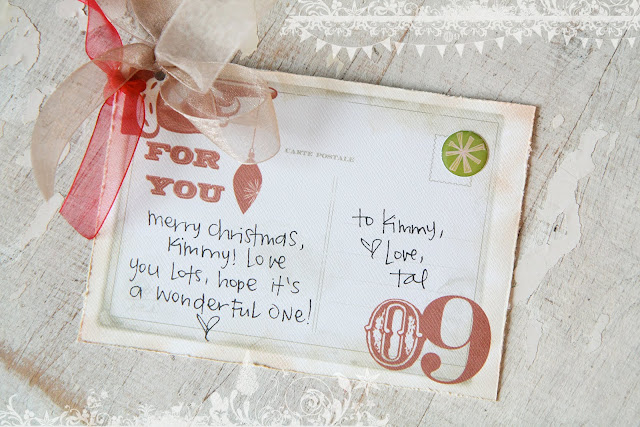 FOR
YOU
CARTE POSTALE
merry christmas,
Kimmy! Love
you lots, hope it's
a wonderful one!
to Kimmy,
Love,
tal
09